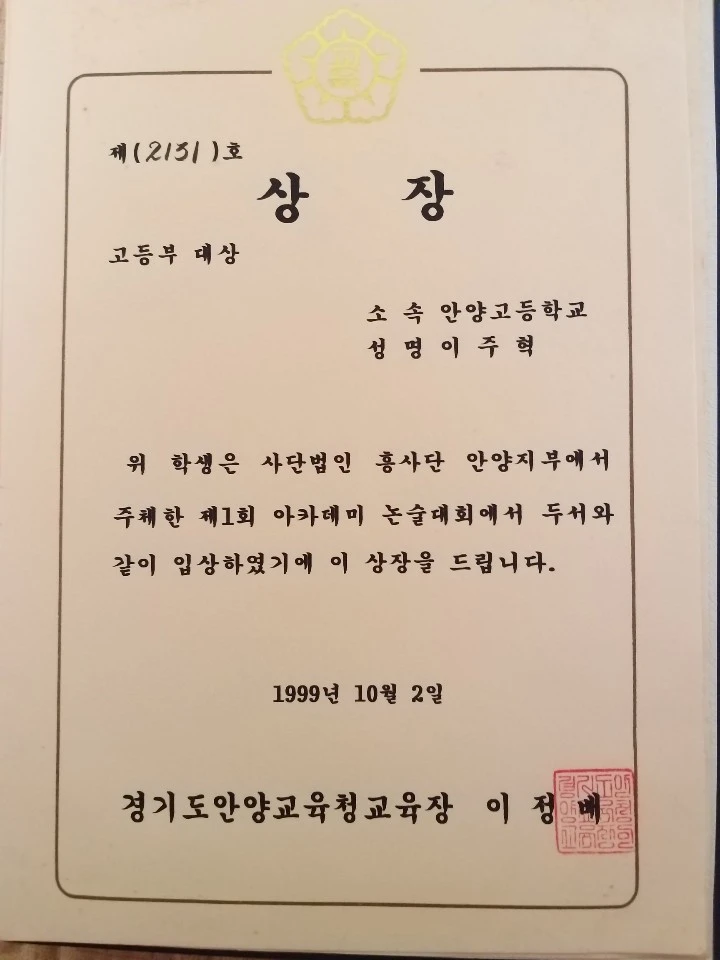 제(2131)호
상 장
고등부 대상
소 속 안양고등학교
성 명 이 주 혁
위 학생은 사단법인 흥사단 안양지부에서
주체한 제1회 아카데미 논술대회에서 두서와
같이 입상하였기에 이 상장을 드립니다.
1999년 10월 2일
경기도안양교육청교육장 이 정 배